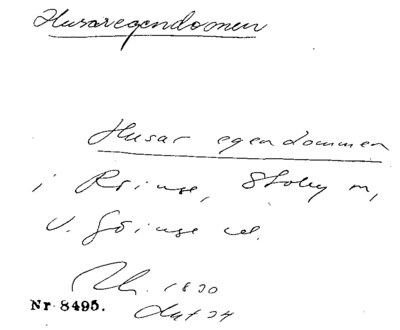 Husaregendomen
Husar egendommen
i Röinge, Stoby sn,
V. Göinge
1830
Nr 8495.